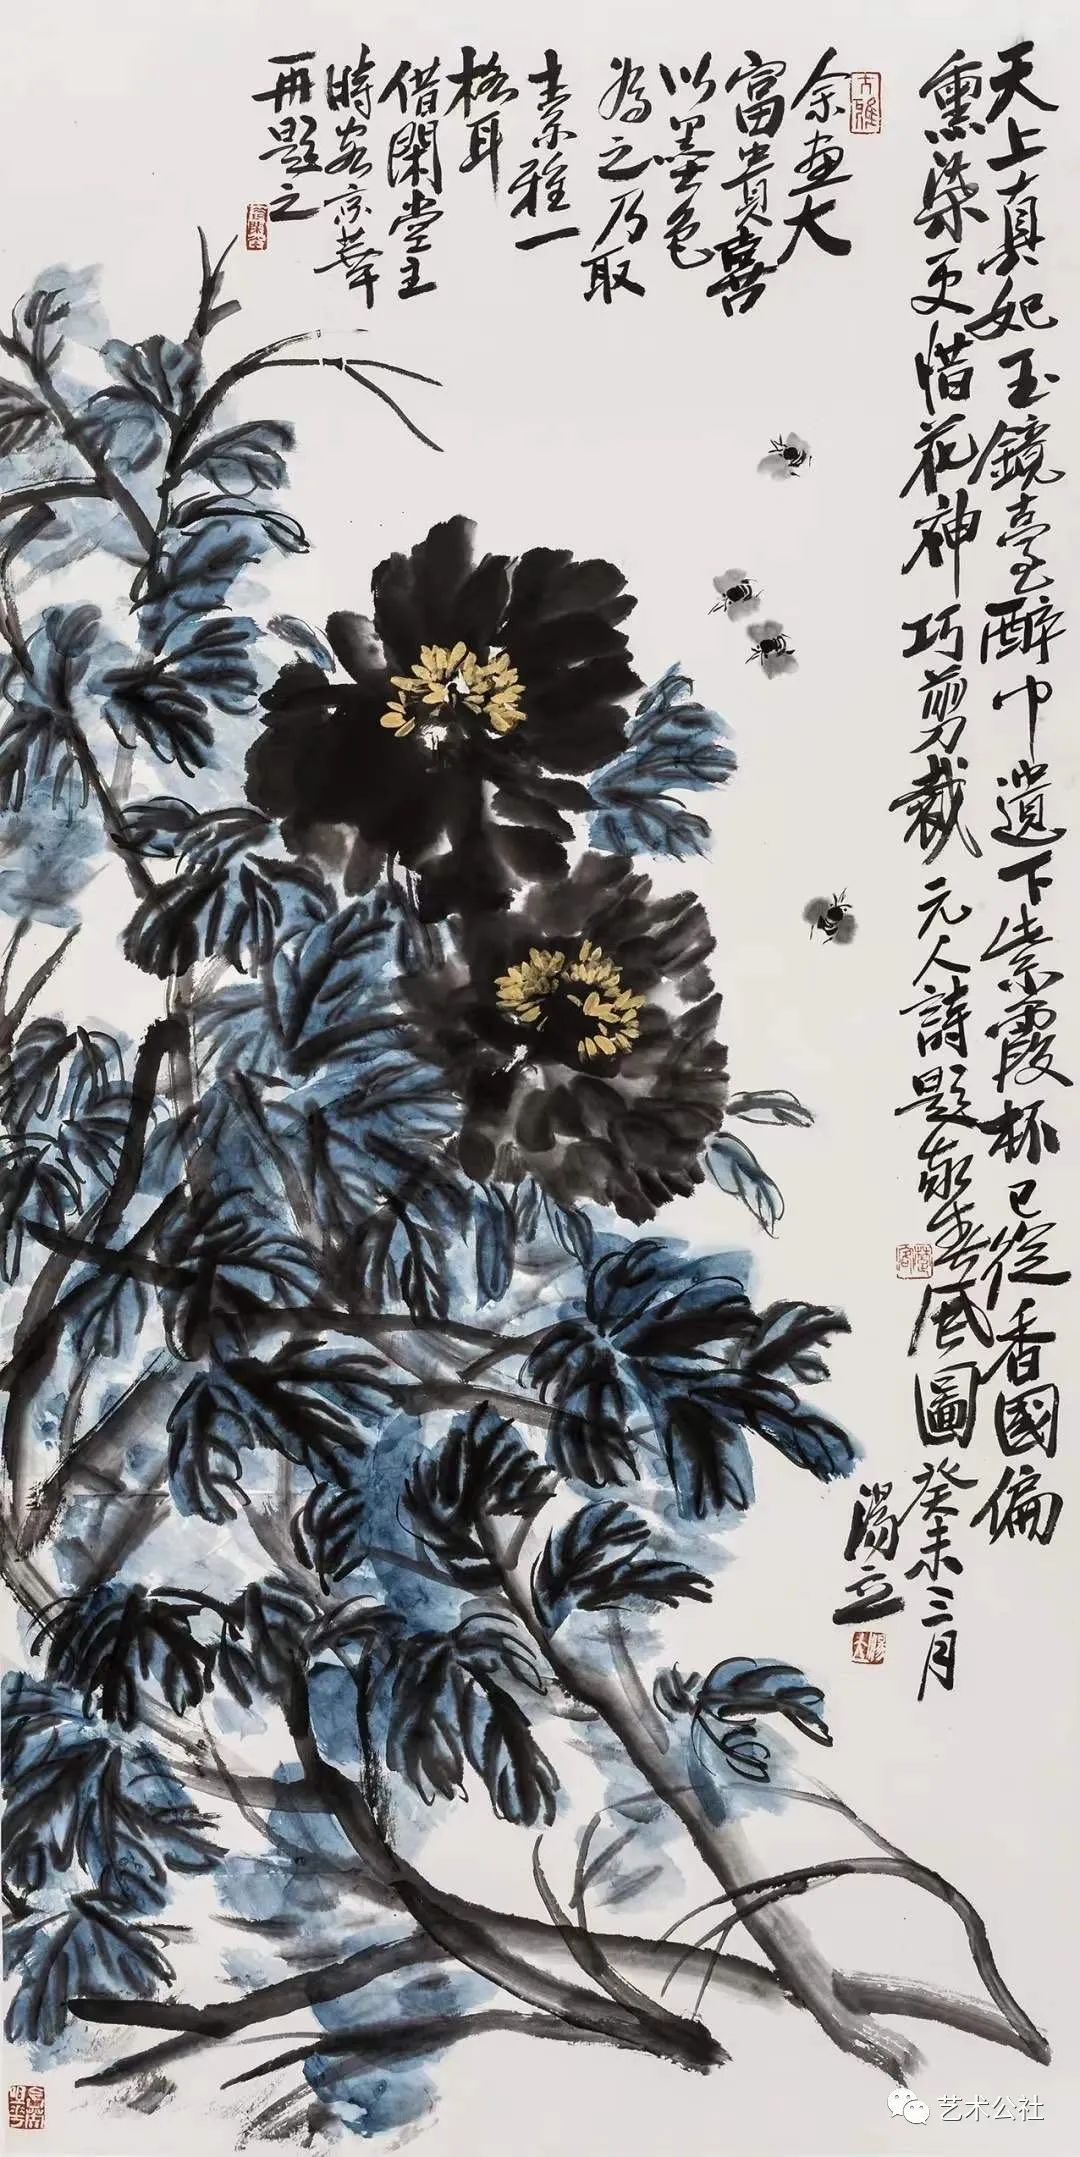 天上真妃玉鏡臺醉巾遺下紫霞杯已從香國偏
熏染更惜花神巧剪裁元人詩題敬春風圖癸未三月
湯立
余畫大
富貴喜
以墨色
為之乃取
素雅一
格耳
借閑堂主
時客京華
再題之
大雅
艺术公社